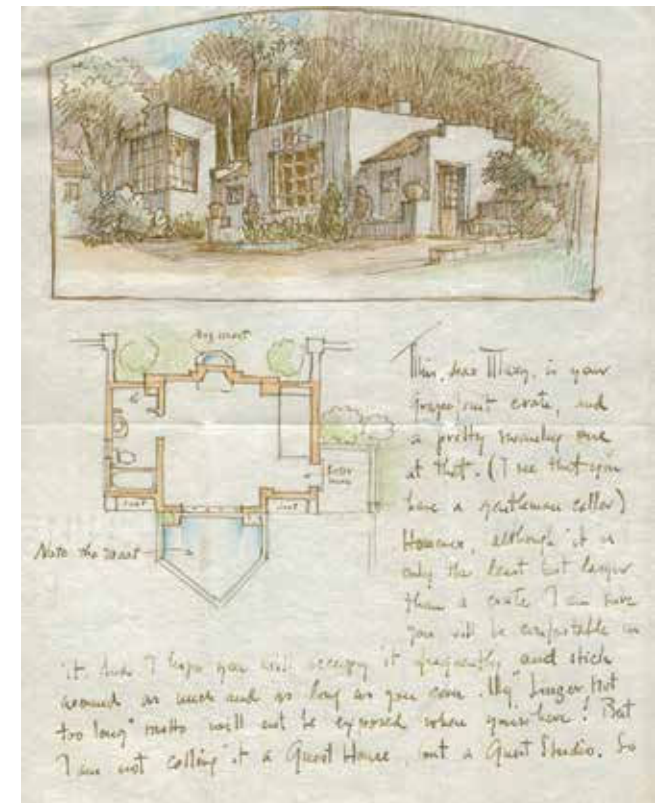 seat
seat
Note the moat
This, dear Mary, is your
grapefruit crate, and
a pretty swanky one
at that. (I see that you
have a gentleman caller)
However, although it is
only the least bit larger
than a crate I am sure
you will be comfortable in
it. And I hope you will occupy it frequently and stick
around as much and as long as you can. My "Linger Not
too long" motto will not be exposed when here! But
I am not calling it a Guest House, but a Guest Studio. So